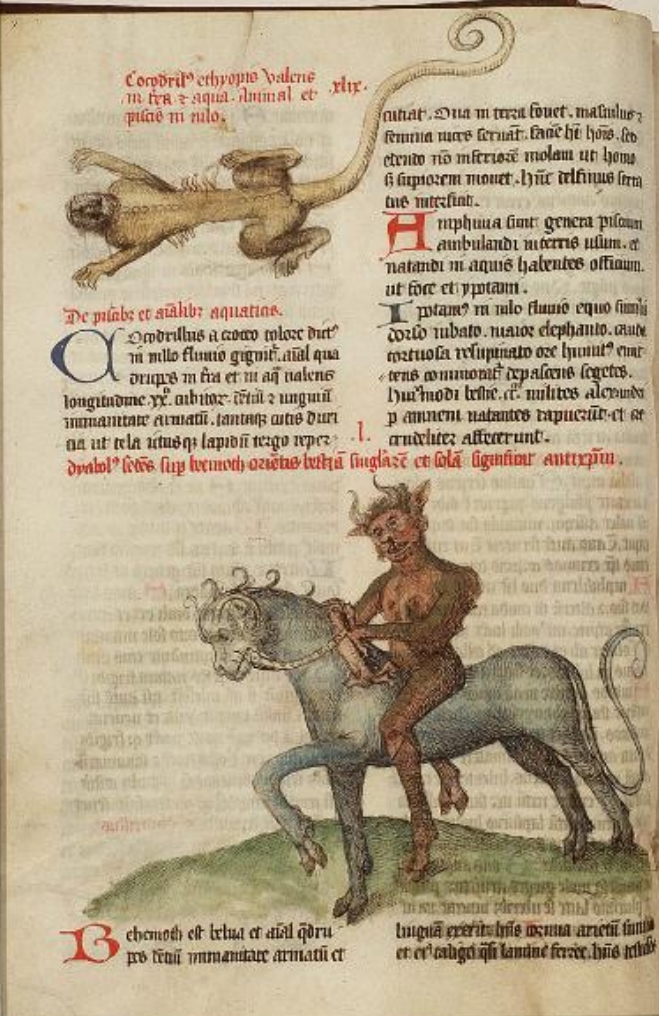 Cocodril⁹ ethyopis valens
in t̄ra ⁊ aqua. Animal et
piscis in nilo.
xlix.
De piscib⁊ et aīalib⁊ aquatic⁊.
COcodrillus a croceo colore dict⁹
in nillo fluuio gignit͛. aīal qua
drupes in t̄ra et in aq̄ ualens
longitudine .xx. cubitor⁊. dētiū ⁊ unguiū
inmanitate armatū. tantaq⁊ cutis duri
cia ut tela ictusq⁊ lapidū tergo reper
cutiat. in terra fouet. masculus ⁊
femina uices seruāt. hōis. sed
edendo nō inferiorē molam ut homo
s⁊ supiorem mouet. hūc delfinus
tus interficit.
Amphiuia sunt genera piscium
ambulandi in terris usum. et
natandi in aquis habentes officium.
ut foce et ypotami.
Ipotam⁹ in nilo fluuio equo simil
dorso iubato. maior elephanto. cauda
tortuosa resupinato ore
depascens segetes.
huiusmodi bestie. milites alexandri
p amnem natantes rapuerūt. et
crudeliter affecerunt.
.l.
dyabol⁹ sedēs sup behemoth orientis bestiā singlarē et solā significat antixp̄m.
Behemoth est belua et aīal q̄dru
pes dētiū inmanitate armatū et
linguā exerit. hui⁹ cornua arietū
et ei⁹ caligo q̄si lamine ferree. hui⁹